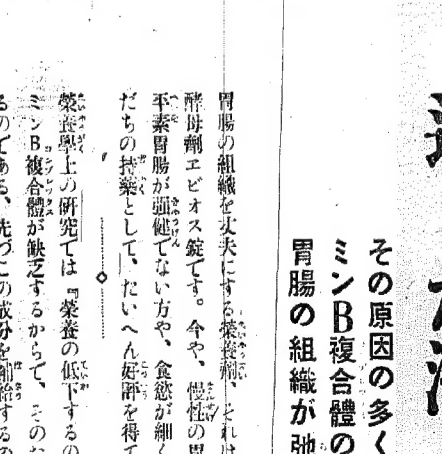 その原因の多く
ミンB複合體の
胃腸の組織が弛
胃腸の組織を丈夫にする榮養劑、それは
酵母劑エビオス錠です。今や、慢性の胃
平素胃腸が强健でない方や、食慾が細く
だちの持藥として、たいへん好評を得て
榮養學上の硏究では『榮養の低下するの
ミンB複合體が缺乏するからで、そのな
るのである、先づこの成分を補給するの